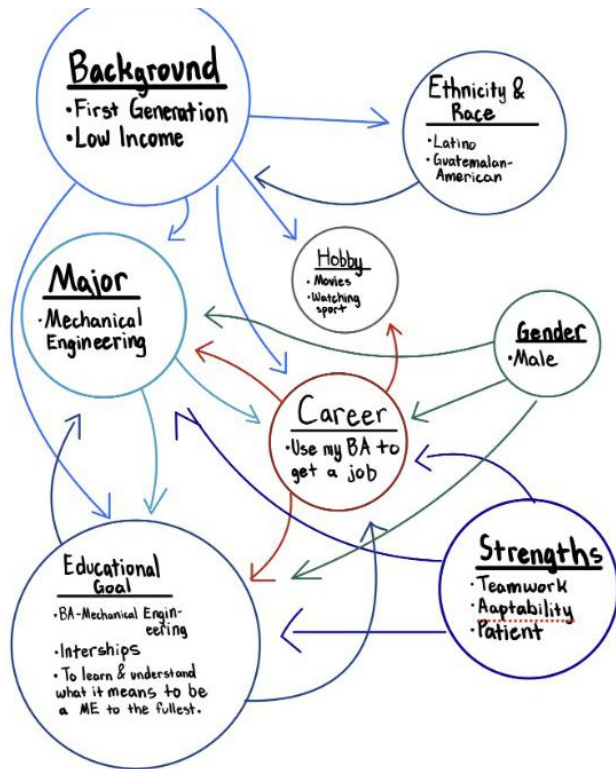 Background
• First Generation
• Low Income
Ethnicity &
Race
• Latino
• Guatemalan-
American
Hobby
• Movies
• Watching
sport
Major
• Mechanical
Engineering
Gender
• Male
Career
• Use my BA to
get a job
Educational
Goal
• BA-Mechanical Engin-
eering
• Interships
• To learn & understand
what it means to be
a ME to the fullest.
Strengths
• Teamwork
• Aaptability
• Patient